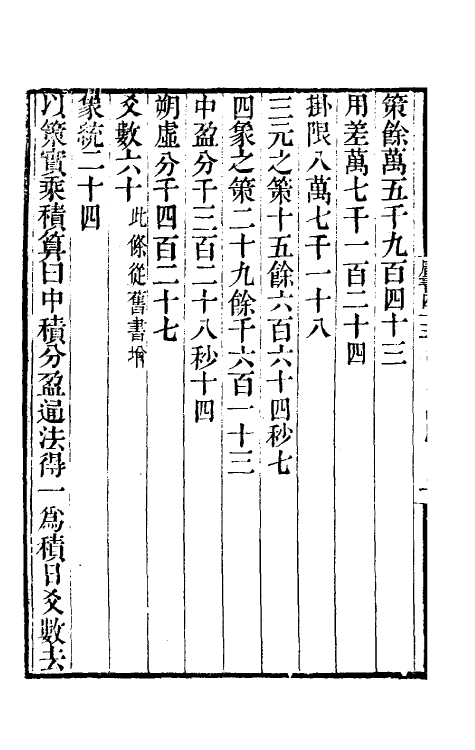 策餘萬五千九百四十三
用差萬七千一百二十四
掛限八萬七千一十八
三元之策十五餘六百六十四秒七
四象之策二十九餘千六百一十三
中盈分千三百二十八秒十四
朔虛分千四百二十七
爻數六十 此條從舊書增
象統二十四
以策實乘積算曰中積分盈通法得一爲積日爻數去